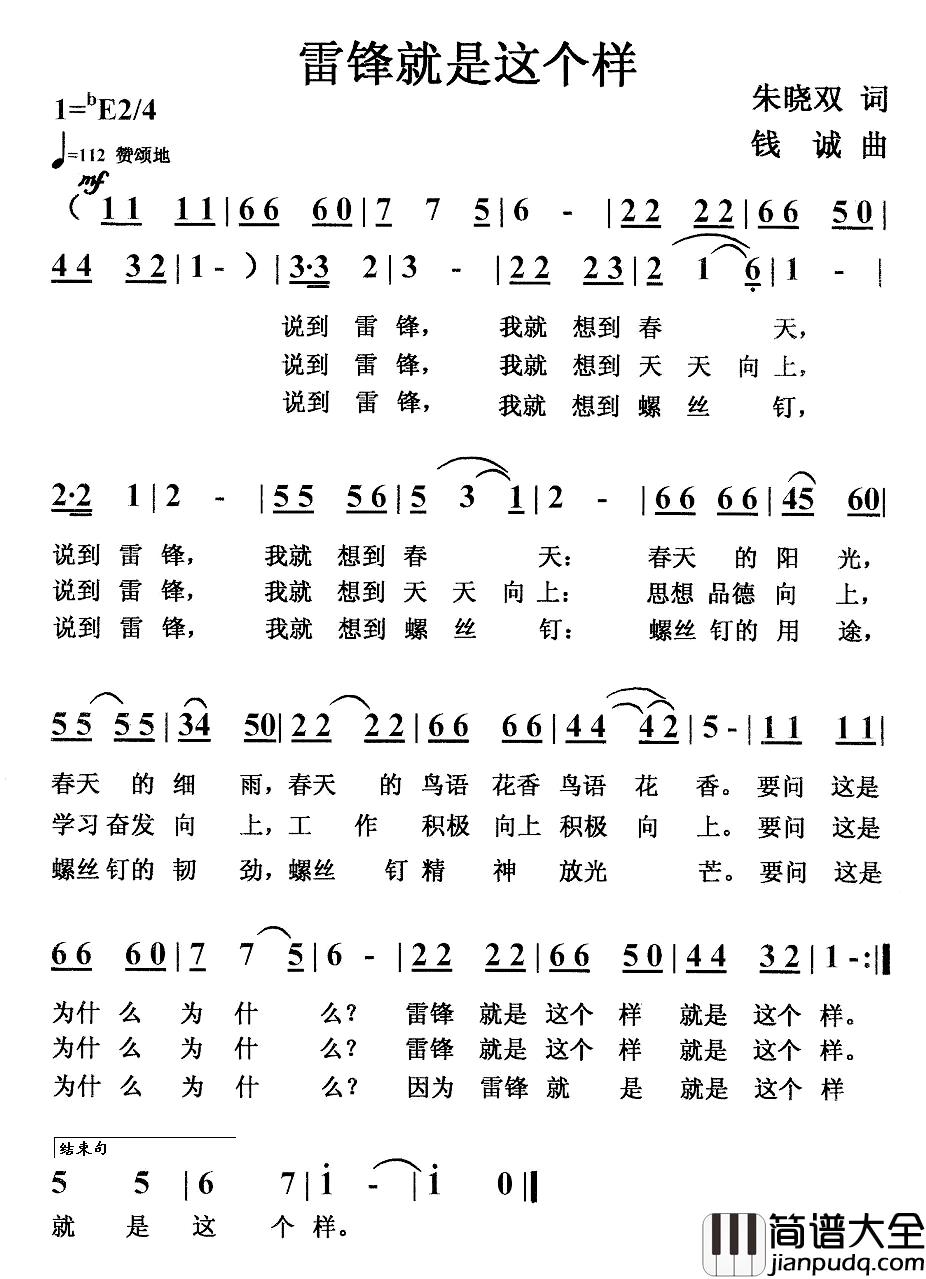 雷锋就是这个样
1=ᵇE2/4
朱晓双 词
♩=112 赞颂地
钱 诚 曲
mf
（ 1 1 1 1 | 6 6 6 0 | 7 7 5 | 6 - | 2 2 2 2 | 6 6 5 0 |
4 4 3 2 | 1 - ） | 3·3 2 | 3 - | 2 2 2 3 | 2 1 6̣ | 1 - |
说到 雷 锋， 我就 想到 春 天，
说到 雷 锋， 我就 想到 天 天 向 上，
说到 雷 锋， 我就 想到 螺 丝 钉，
2·2 1 | 2 - | 5 5 5 6 | 5 3 1 | 2 - | 6 6 6 6 | 4 5 6 0 |
说到 雷 锋， 我就 想到 春 天： 春天 的 阳 光，
说到 雷 锋， 我就 想到 天 天 向 上： 思想 品德 向 上，
说到 雷 锋， 我就 想到 螺 丝 钉： 螺丝 钉的 用 途，
5 5 5 5 | 3 4 5 0 | 2 2 2 2 | 6 6 6 6 | 4 4 4 2 | 5 - | 1 1 1 1 |
春天 的 细 雨，春天 的 鸟语 花香 鸟语 花 香。 要问 这是
学习 奋发 向 上，工 作 积极 向上 积极 向 上。 要问 这是
螺丝 钉的 韧 劲，螺丝 钉 精 神 放光 芒。 要问 这是
6 6 6 0 | 7 7 5 | 6 - | 2 2 2 2 | 6 6 5 0 | 4 4 3 2 | 1 - :‖
为什 么 为 什 么？ 雷锋 就是 这个 样 就是 这个 样。
为什 么 为 什 么？ 雷锋 就是 这个 样 就是 这个 样。
为什 么 为 什 么？ 因为 雷锋 就 是 就是 这个 样
结束句
5 5 | 6 7 | 1̇ - | 1̇ 0 ‖
就 是 这 个 样。
简谱大全
jianpudq.com